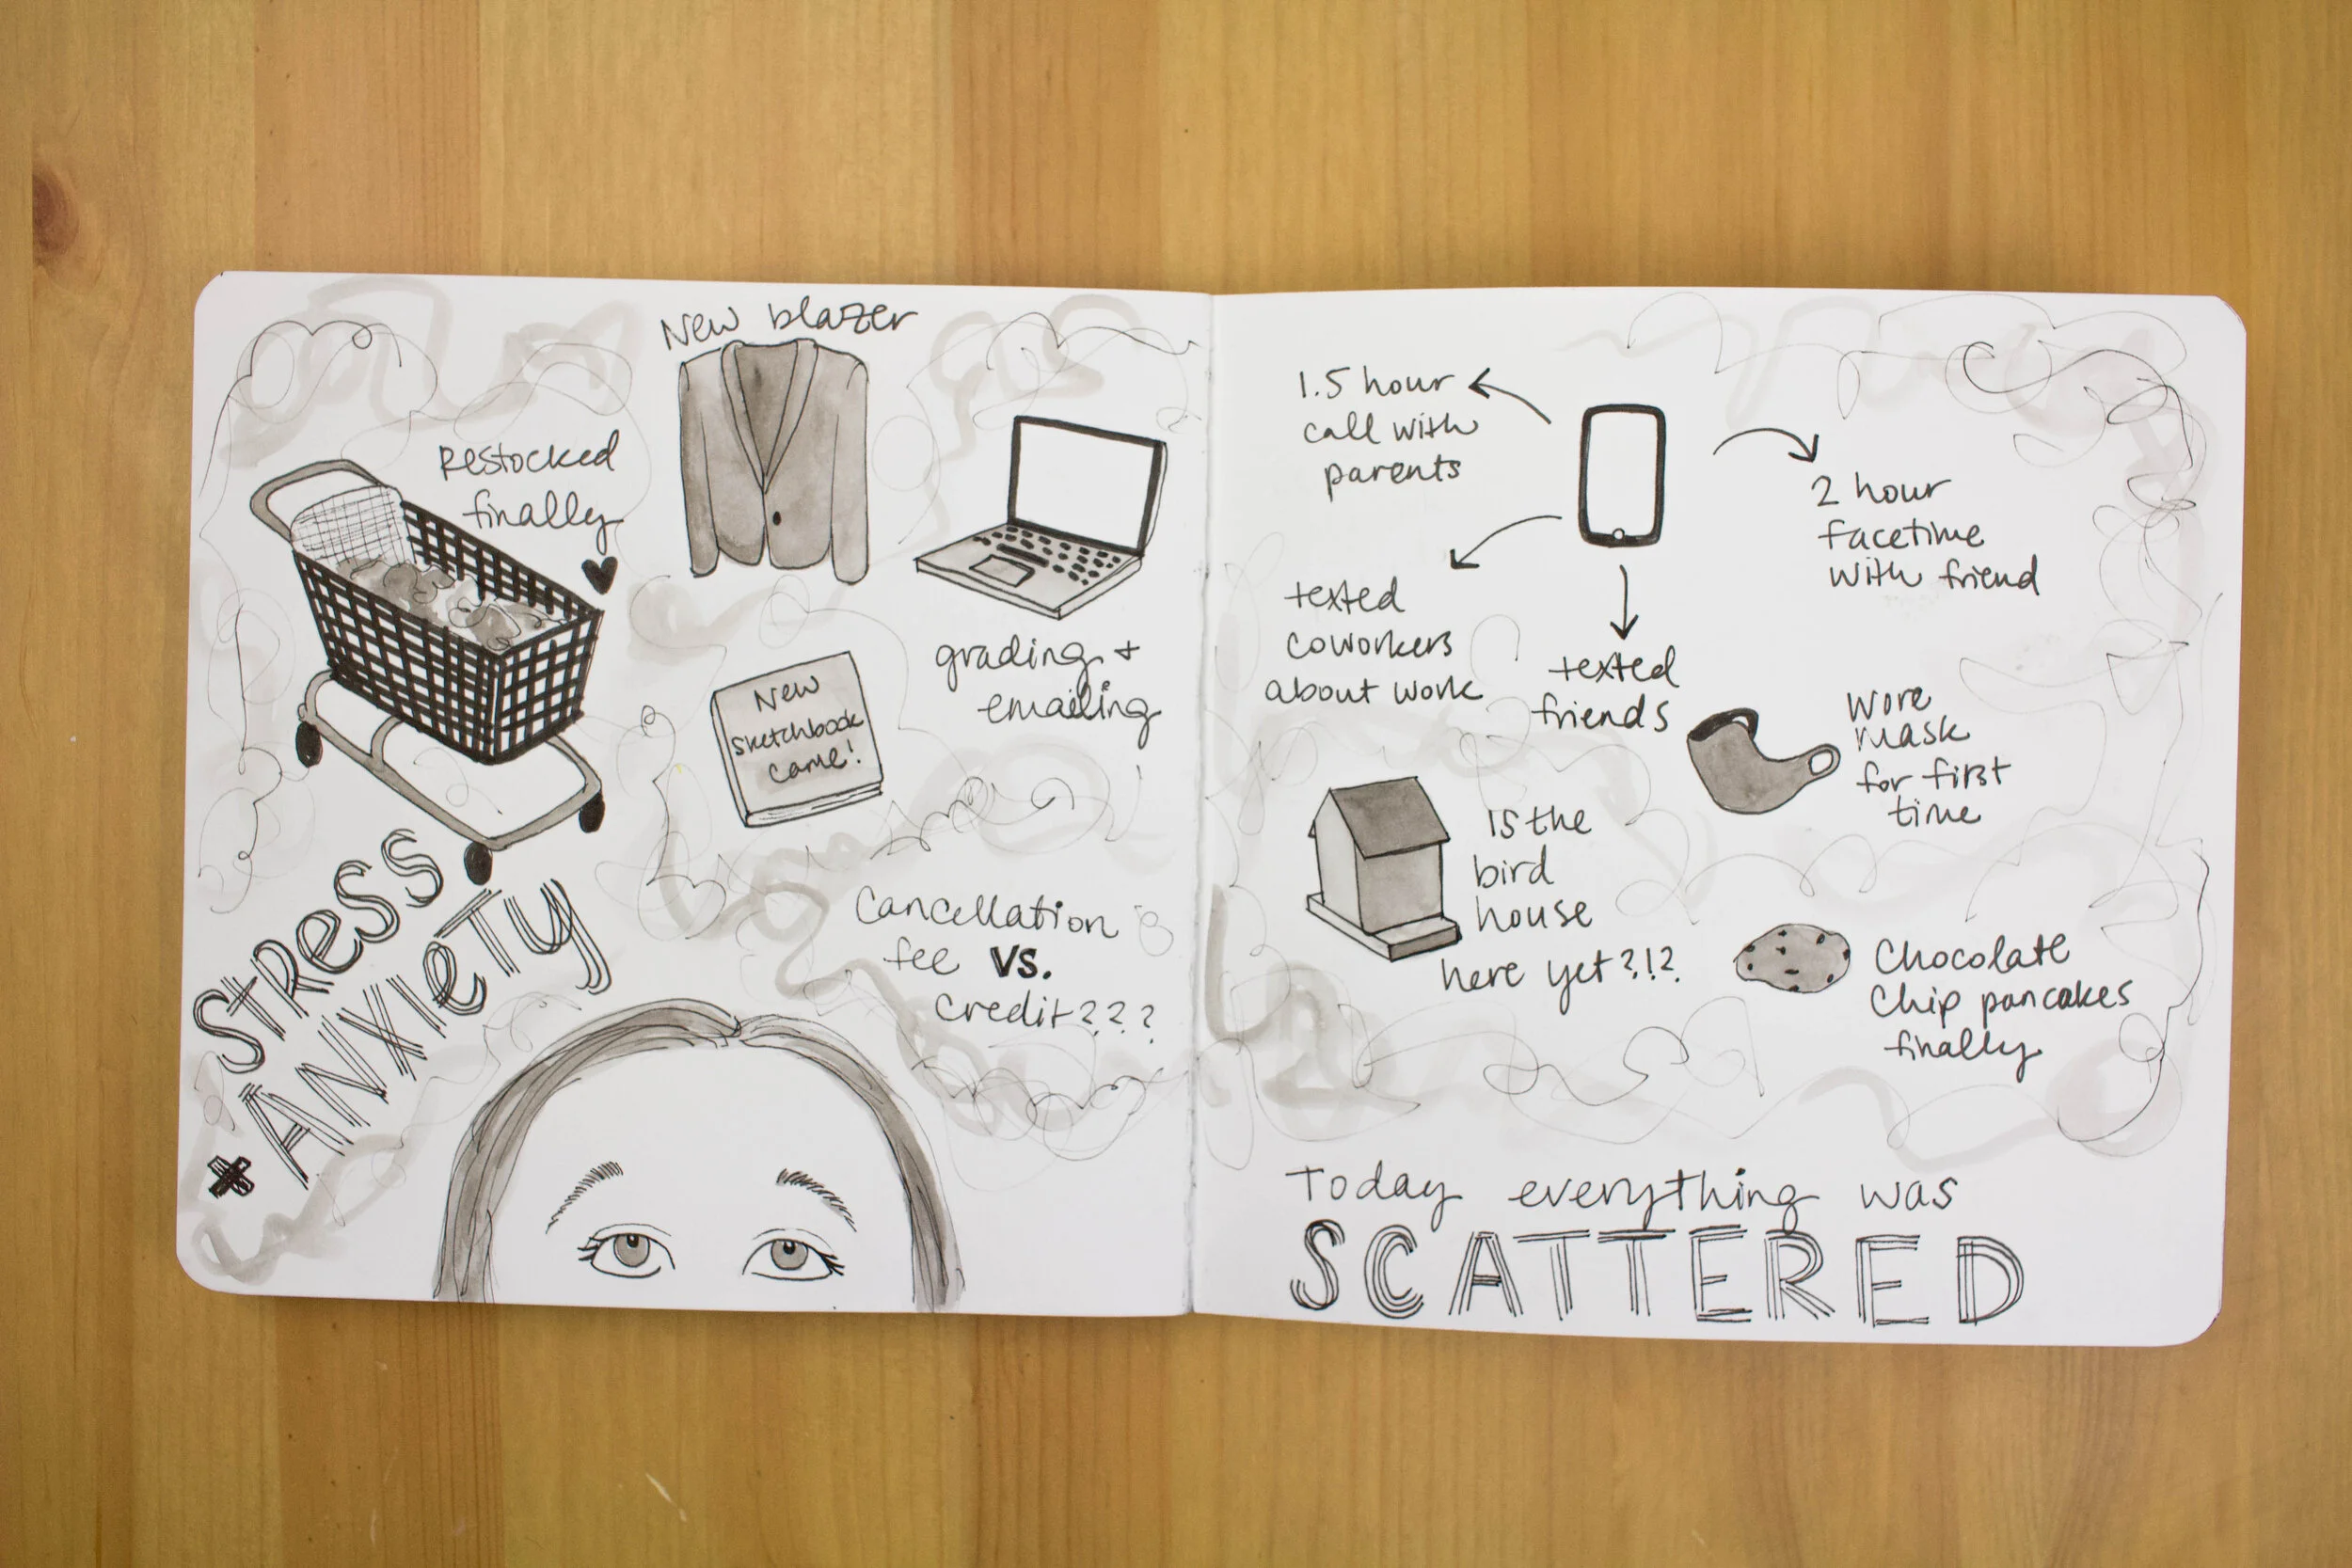 New blazer
Restocked
finally
grading +
emailing
New
sketchbook
came!
STRESS
+ ANXIETY
Cancellation
fee VS.
credit???
1.5 hour
call with
parents
2 hour
facetime
with friend
texted
coworkers
about work
texted
friends
Wore
mask
for first
time
Is the
bird
house
here yet?!?
Chocolate
Chip pancakes
finally
Today everything was
SCATTERED